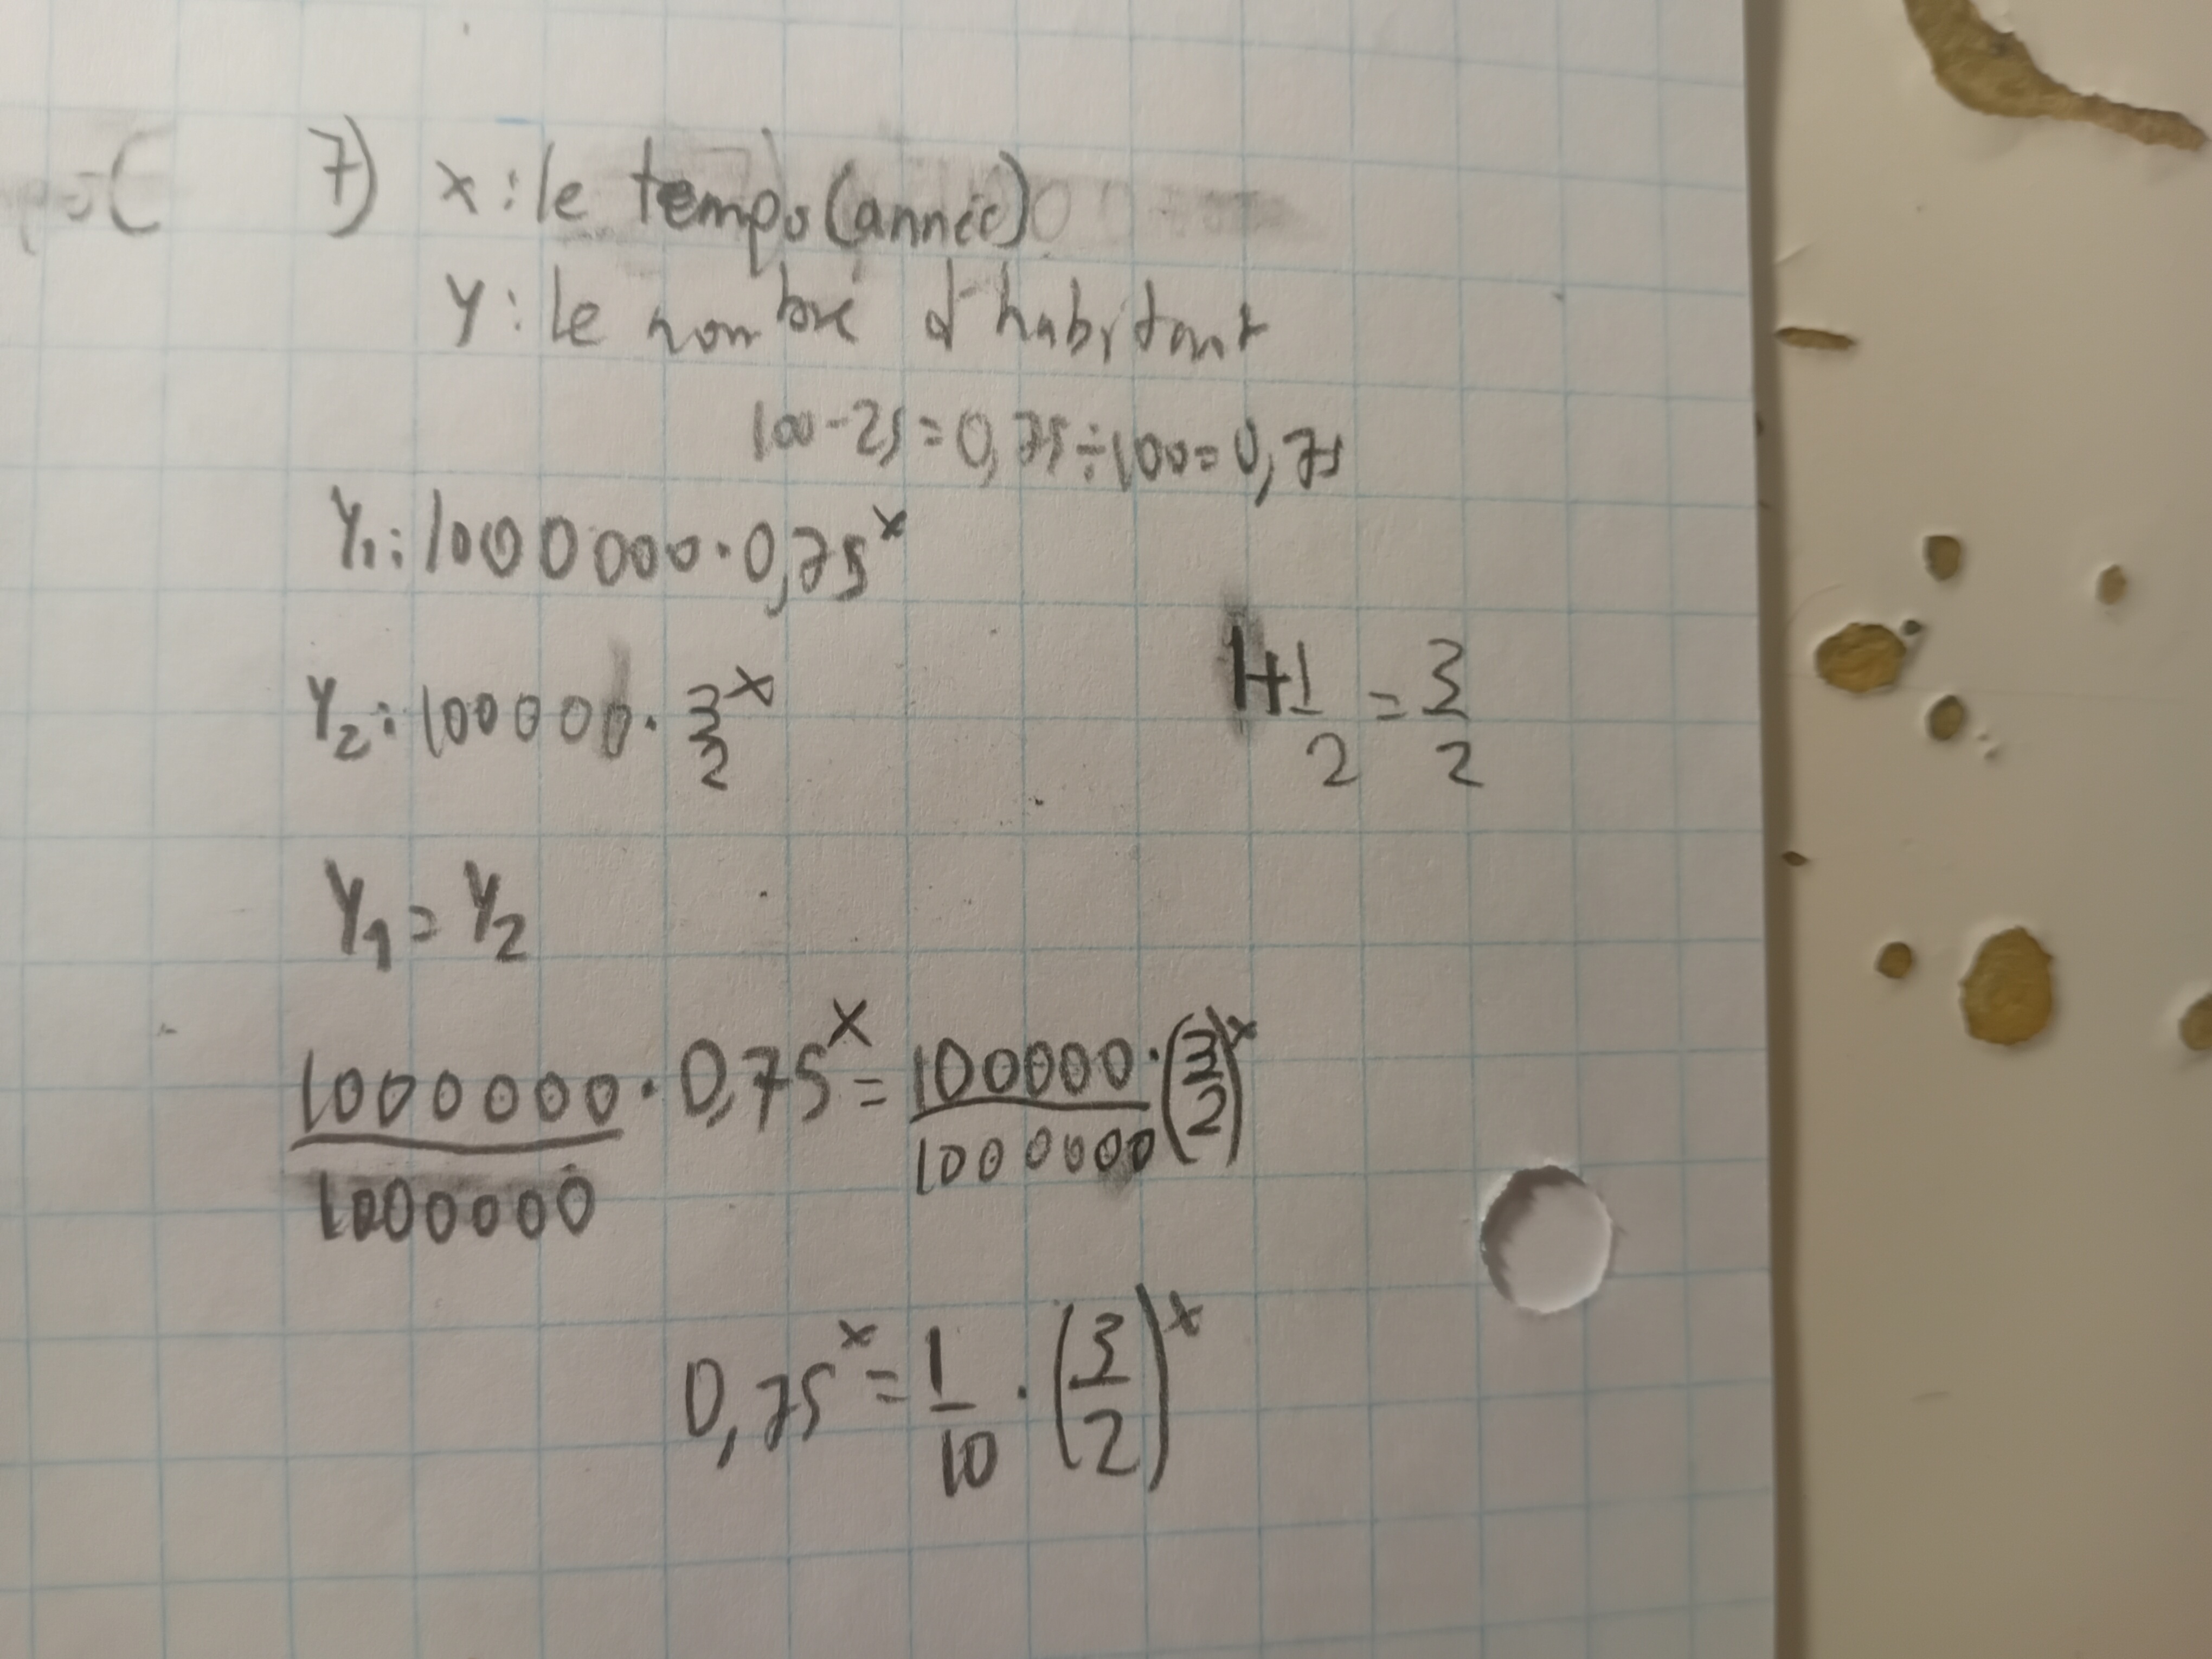 7) x : le temps (année)
y : le nombre d'habitant
100-25 = 0,75 ÷ 100 = 0,75
Y₁ : 1000000 · 0,75ˣ
Y₂ : 100000 · 3/2ˣ
1+1/2 = 3/2
Y₁ = Y₂
1000000/1000000 · 0,75ˣ = 100000/1000000 · (3/2)ˣ
0,75ˣ = 1/10 · (3/2)ˣ